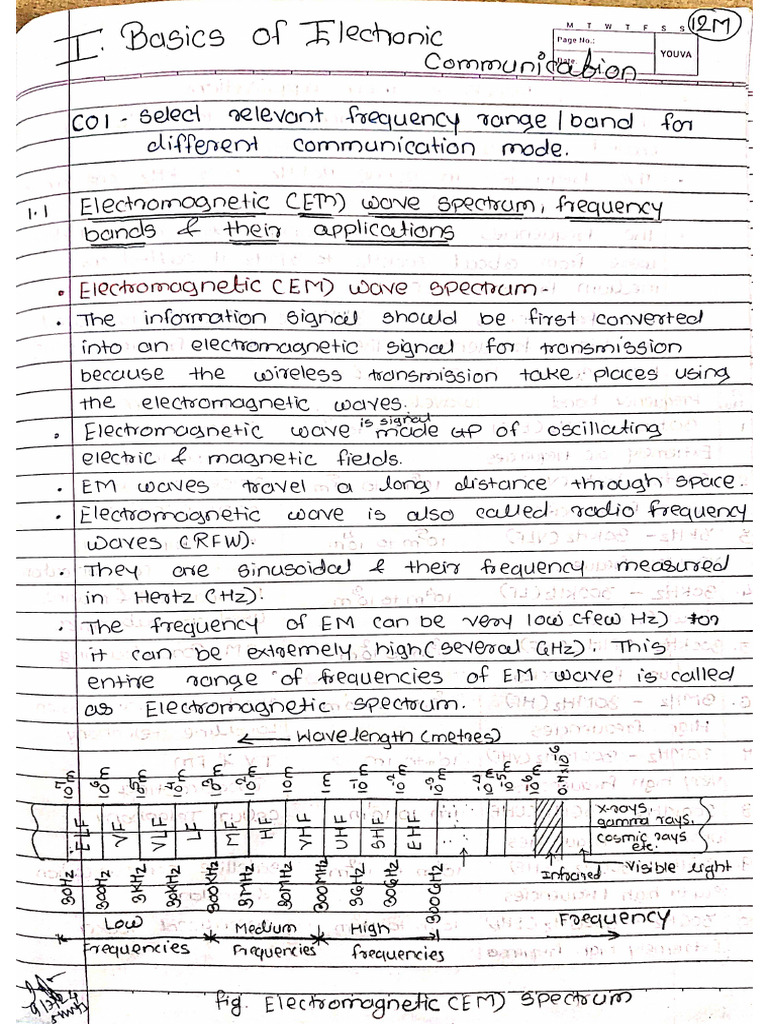 12M
M T W T F S S
Page No.:
Date
YOUVA
I. Basics of Electronic
Communication
CO1 - select relevant frequency range / band for
different communication mode.
1.1 Electromagnetic (EM) wave spectrum, frequency
bands & their applications
• Electromagnetic (EM) wave spectrum-
• The information signal should be first converted
into an electromagnetic signal for transmission
because the wireless transmission take places using
the electromagnetic waves.
• Electromagnetic wave is signal made up of oscillating
electric & magnetic fields.
• EM waves travel a long distance through space.
• Electromagnetic wave is also called radio frequency
waves (RFW).
• They are sinusoidal & their frequency measured
in Hertz (Hz):
• The frequency of EM can be very low (few Hz) or
it can be extremely high (several GHz). This
entire range of frequencies of EM wave is called
as Electromagnetic spectrum.
← Wavelength (metres)
10⁷m 10⁶m 10⁵m 10⁴m 10³m 10²m 10m 1m 10⁻¹m 10⁻²m 10⁻³m 10⁻⁴m 10⁻⁵m 10⁻⁶m 0.4×10⁻⁶
ELF VF VLF LF MF HF VHF UHF SHF EHF
x-rays,
gamma rays.
cosmic rays
etc.
Infrared
Visible light
30Hz 300Hz 3KHz 30KHz 300KHz 3MHz 30MHz 300MHz 3GHz 30GHz 300GHz
Low Medium High Frequency
frequencies frequencies frequencies
fig. Electromagnetic (EM) spectrum